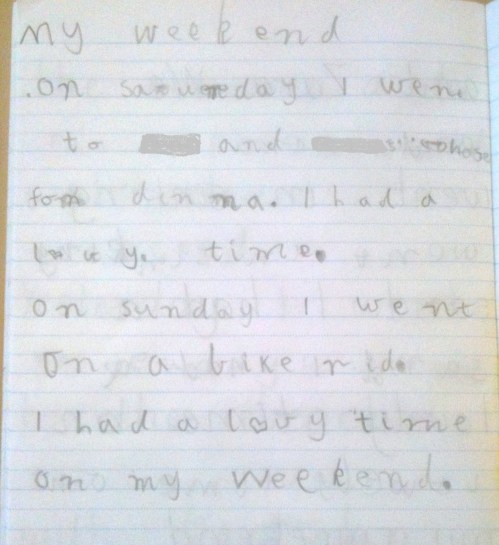 My weekend
.on saturday I wen
to and hose
for dinma. I had a
lovy. time.
on sunday I went
on a bike rid.
I had a lovy time
on my weekend.